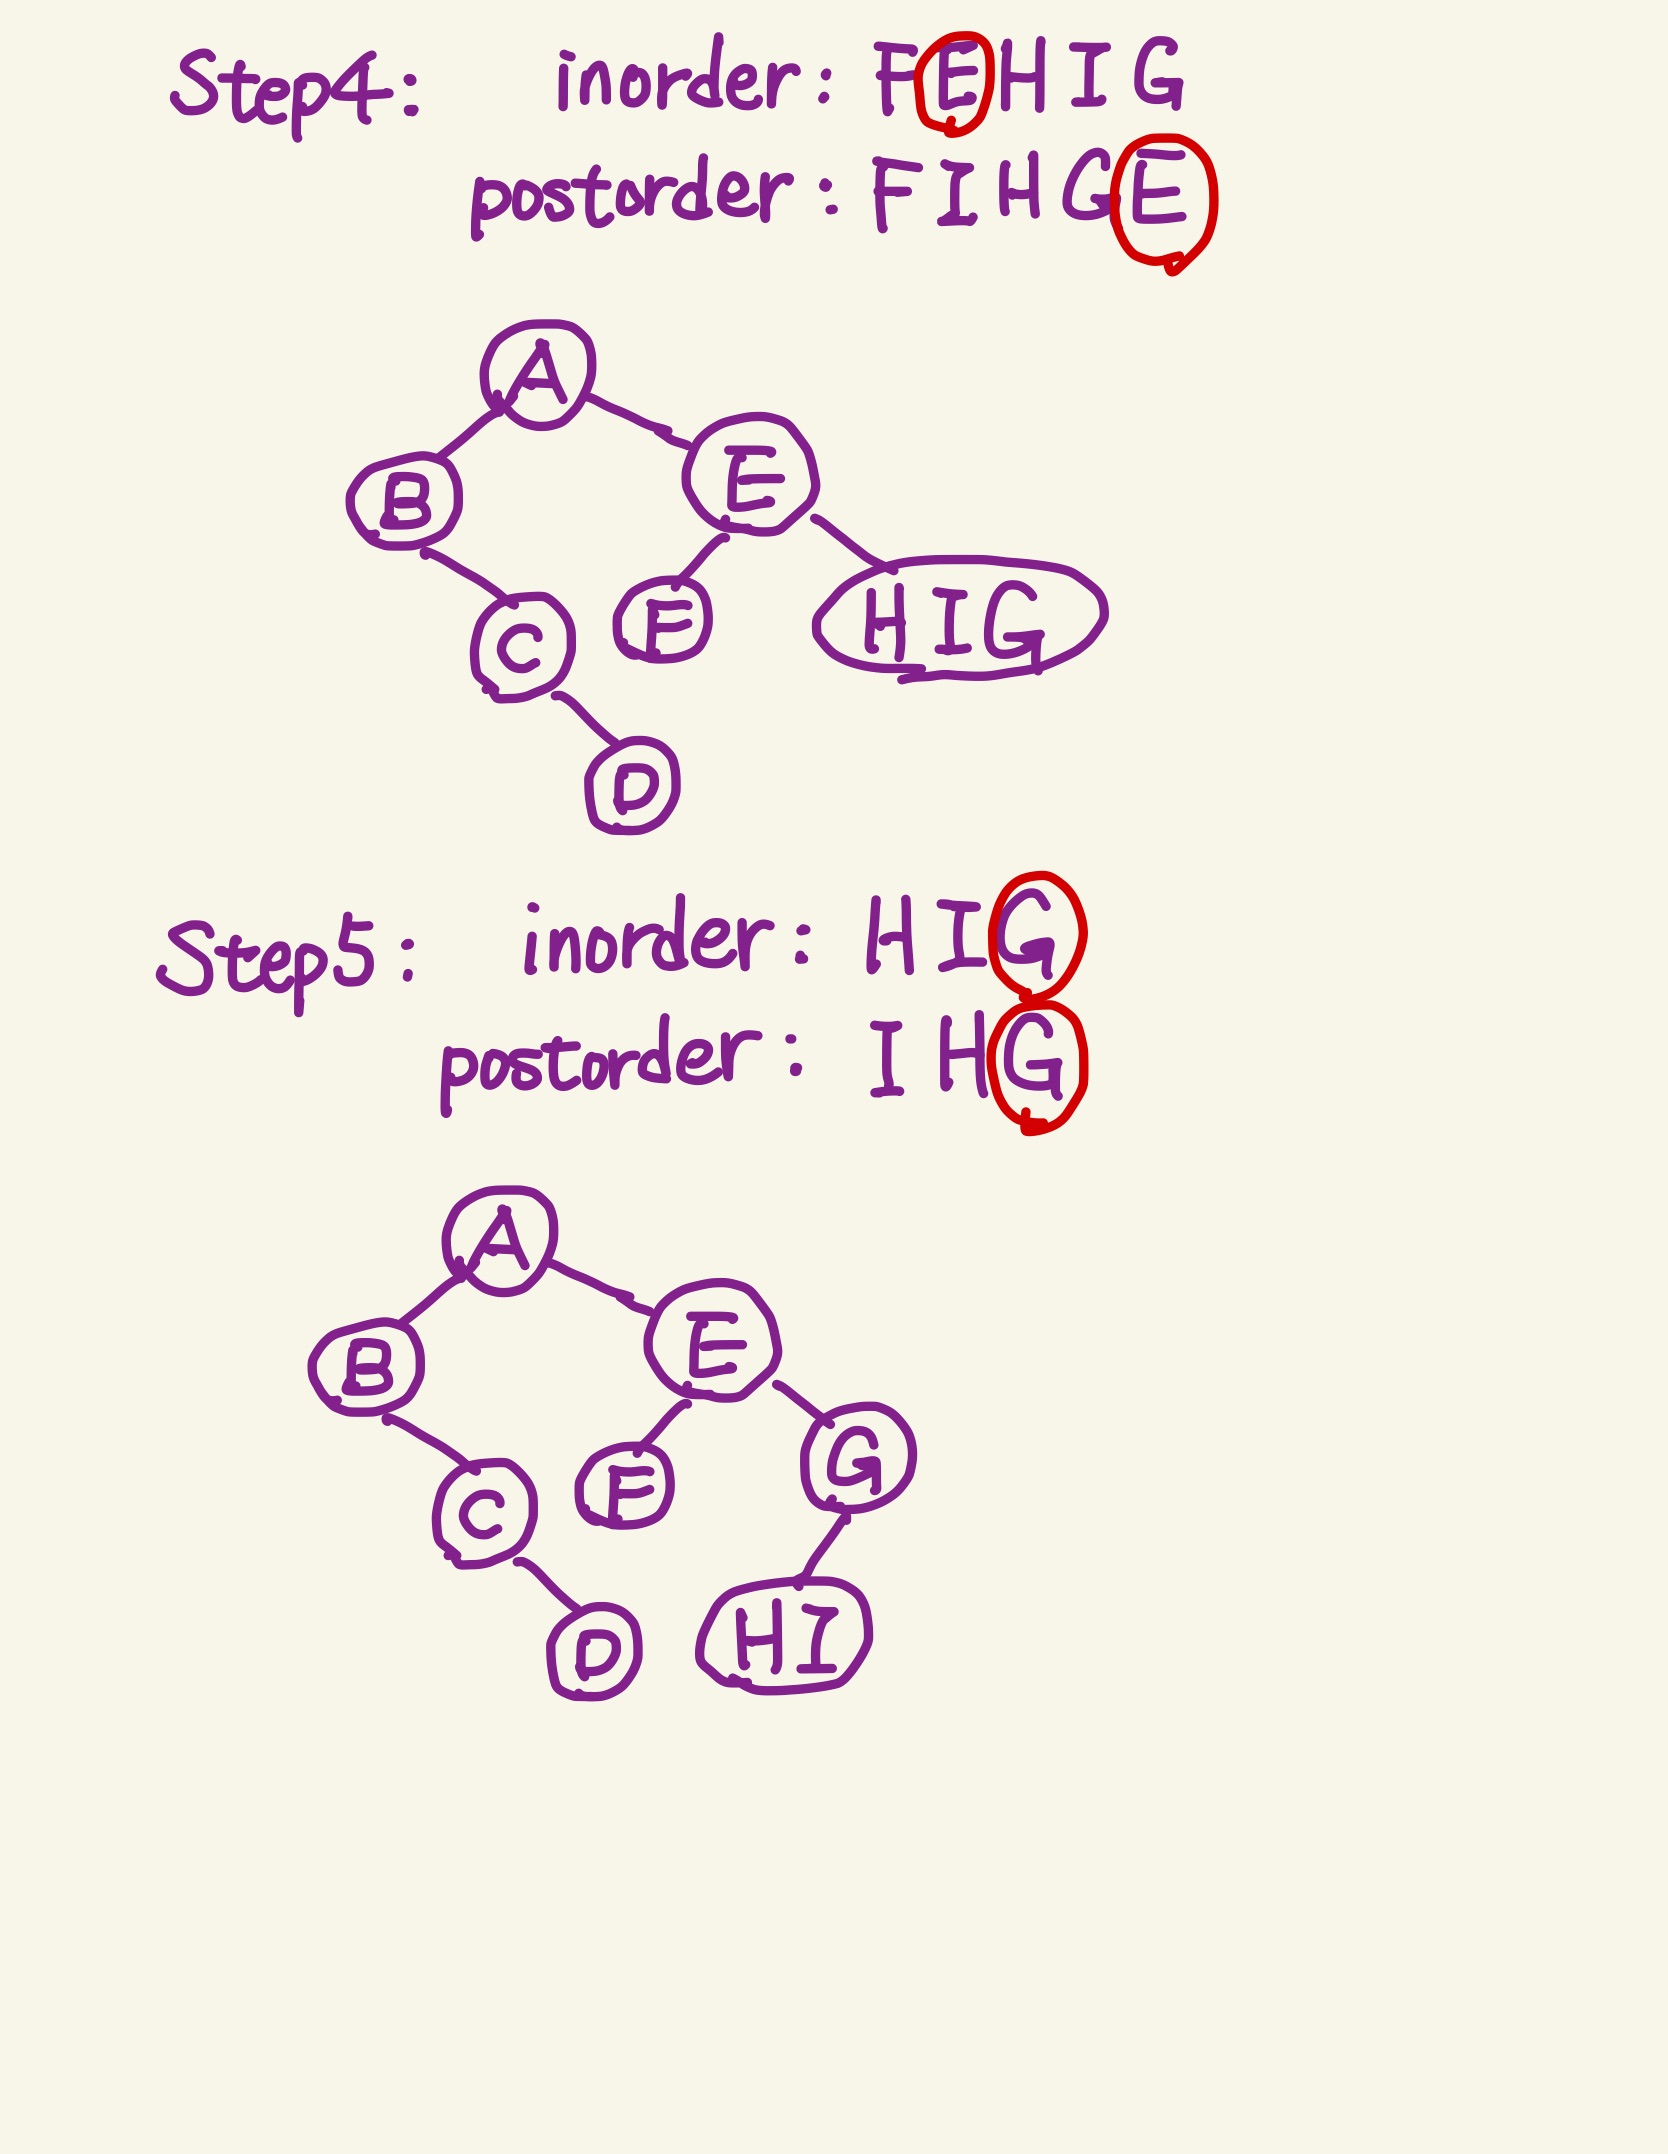 Step4: inorder: FEHIG
postorder: FIHGE
A
B E
C F HIG
D
Step5: inorder: HIG
postorder: IHG
A
B E
C F G
D HI